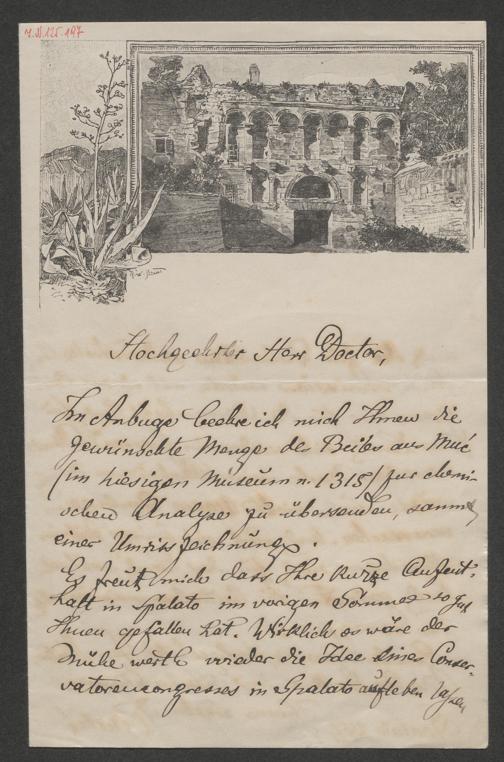 M.N. 125.197
Hochgeehrter Herr Doctor,
In Anbuge beehre ich mich Ihnen die
gewünschte Menge des Beiles aus Muć
(im hiesigen Museum n. 1315) zur chemi-
schen Analyse zu übersenden, sammt
einer Umrisszeichnung.
Es freut mich dass Ihre kurze Aufent-
halt in Spalato im vorigen Sommer so gut
Ihnen gefallen hat. Wirklich es wäre der
Mühe werth wieder die Idee eines Conser-
vatorencongresses in Spalato aufleben lassen